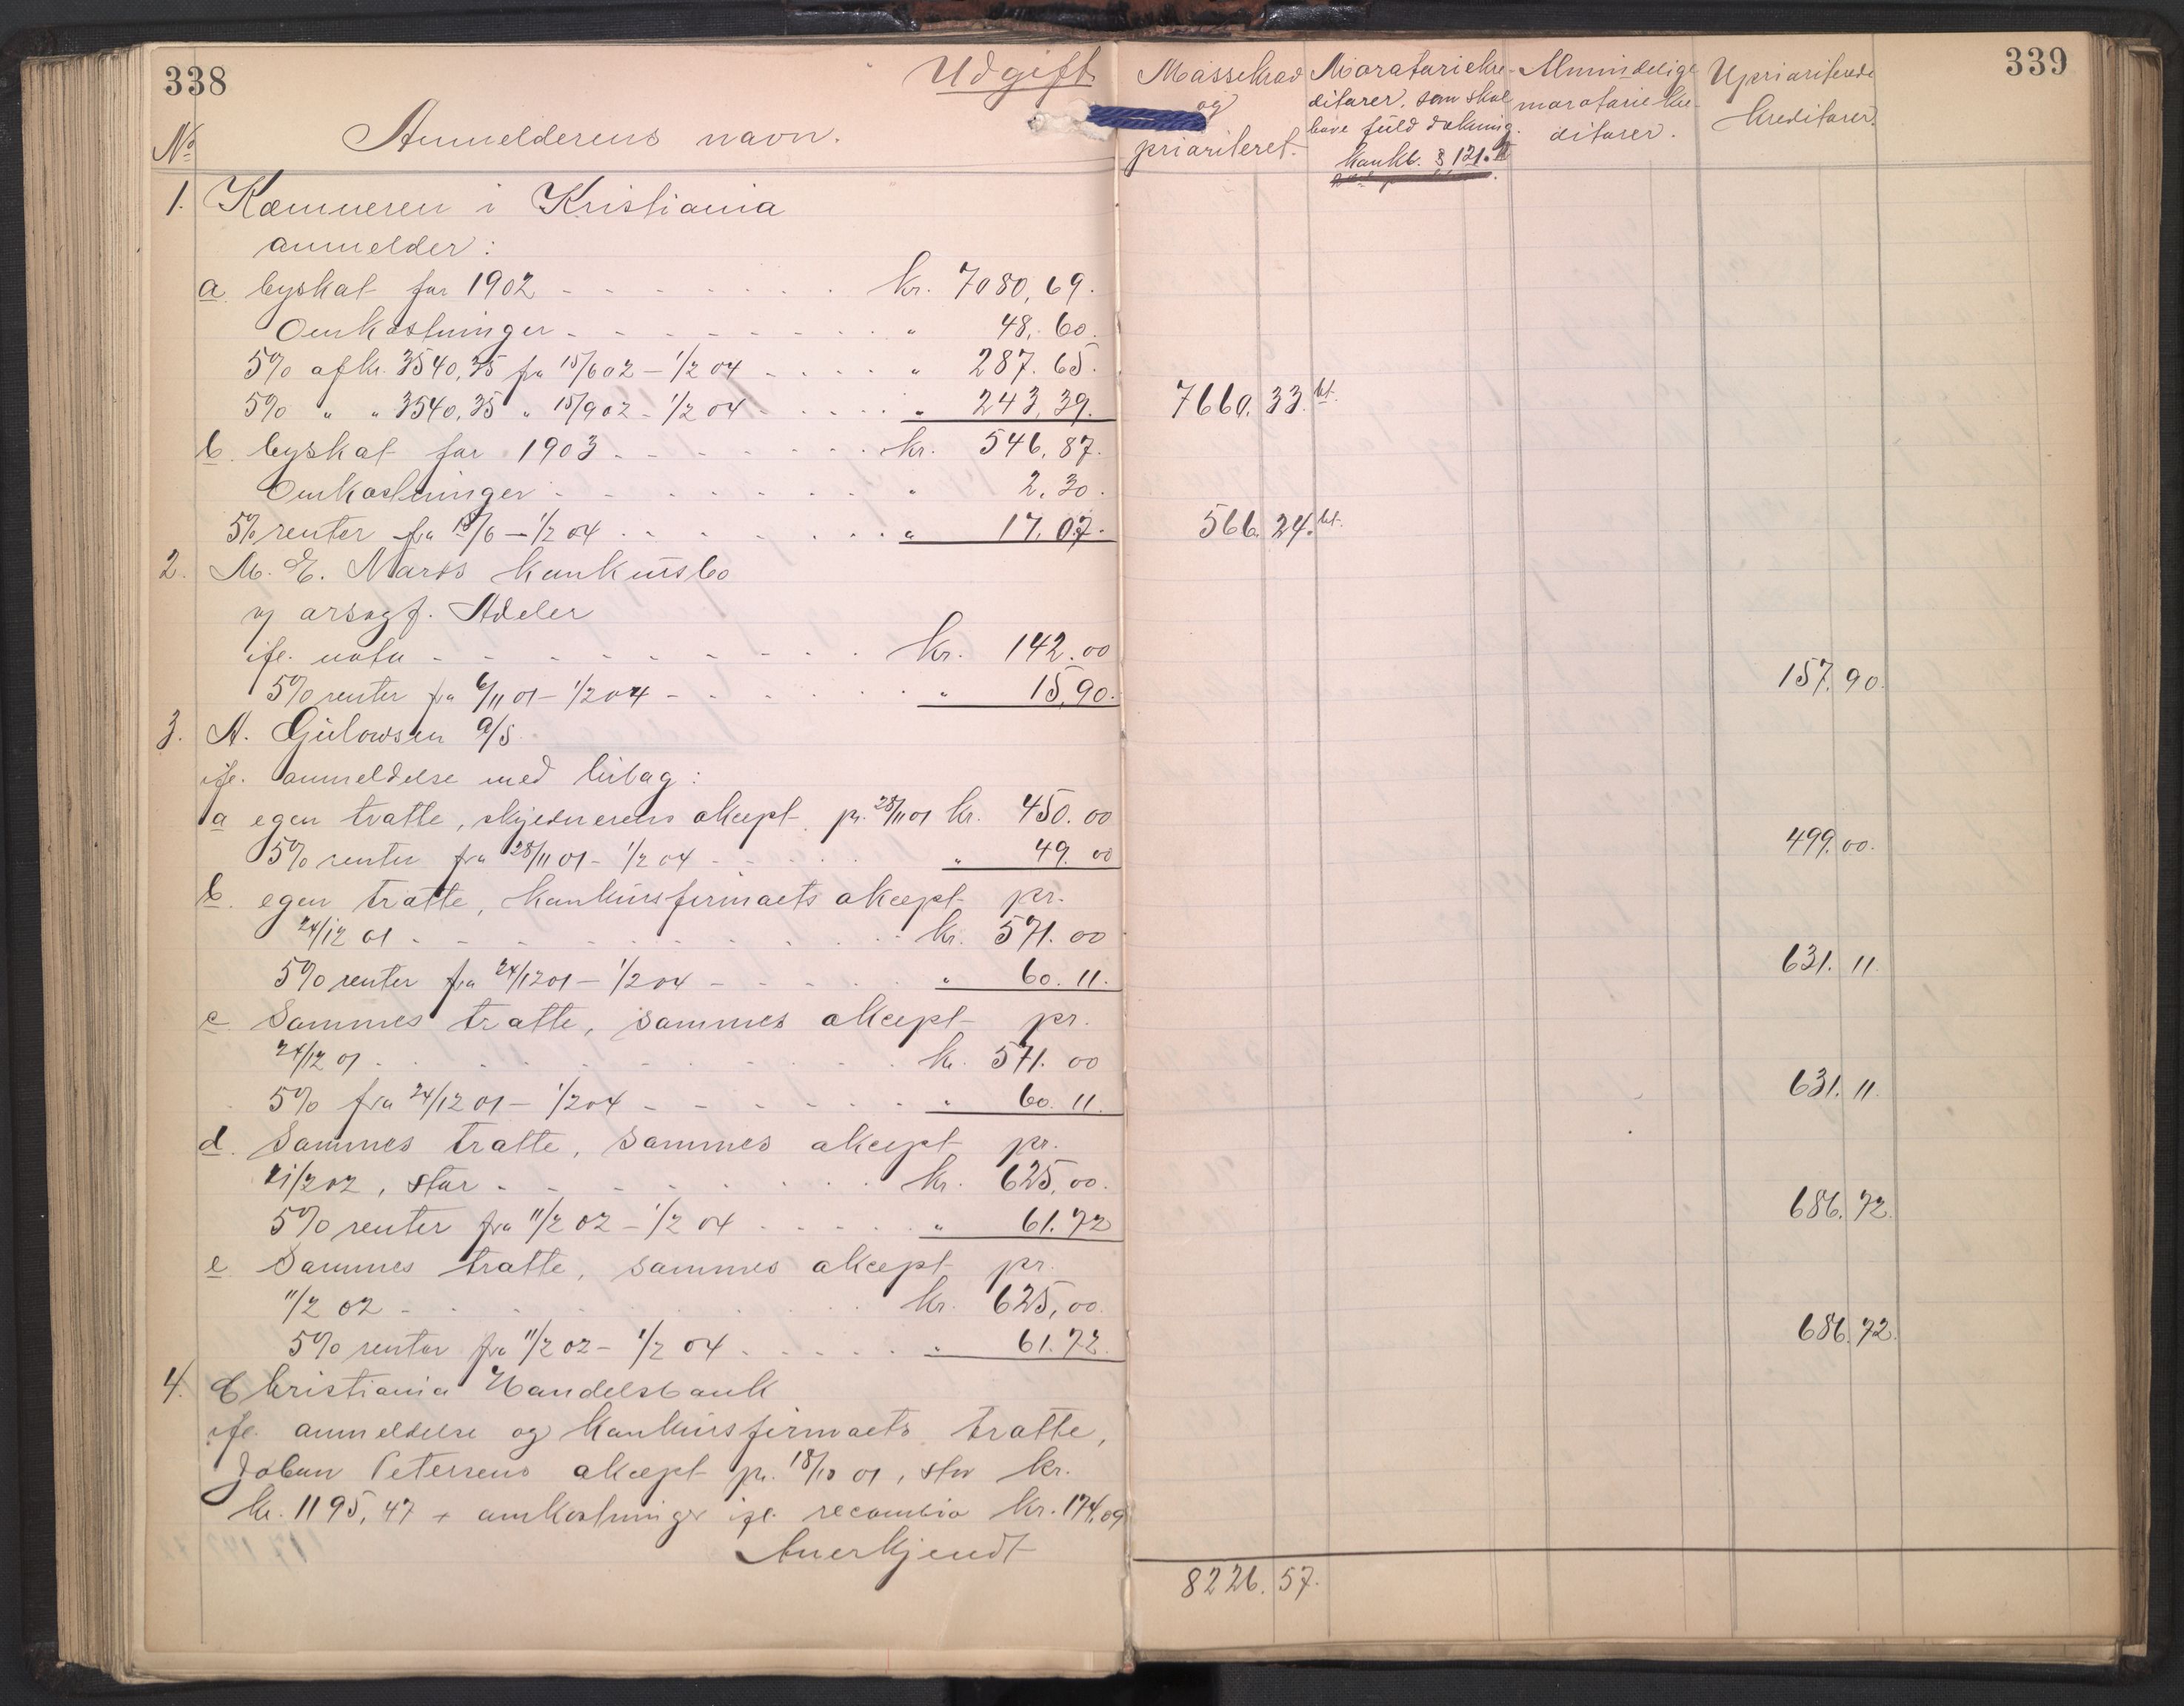 338
Udgift
Massekrav og prioriteret.
Moratoriekreditorer, som skal have fuld dækning. Konkl. § 121.
Almindelige moratoriekreditorer.
Upriariterede kreditorer.
339
No Anmelderens navn.
1. Kæmneren i Kristiania
anmelder:
a. byskat for 1902 kr. 7080,69.
Omkostninger " 48,60.
5% af kr. 3540,35 fra 15/6 02 – 1/2 04 " 287.65.
5% " " 3540,35 " 15/9 02 – 1/2 04 " 243,39. 7660.33.
b. byskat for 1903 kr. 546,87.
Omkostninger " 2.30.
5% renter fra 15/6 – 1/2 04 " 17.07. 566.24.
2. M. E. Narss konkursbo
v/ orsagf. Adeler
ifl. nota kr. 142.00
5% renter fra 6/11 01 – 1/2 04 " 15,90. 157.90.
3. A. Gulowsen a/s.
ifl. anmeldelse med bilag:
a egen tratte, skjødnerens aksept pr. 28/11 01 kr. 450.00
5% renter fra 28/11 01 – 1/2 04 " 49.00 499.00.
b. egen tratte, konkursfirmaets aksept pr.
24/12 01 kr. 571.00
5% renter fra 24/12 01 – 1/2 04 " 60.11. 631.11.
c Sammes tratte, sammes aksept pr.
24/12 01 kr. 571.00
5% fra 24/12 01 – 1/2 04 " 60.11. 631.11.
d. Sammes tratte, sammes aksept pr.
11/2 02, stor kr. 625,00.
5% renter fra 11/2 02 – 1/2 04 " 61.72 686.72.
e Sammes tratte, sammes aksept pr.
11/2 02 kr. 625,00.
5% renter fra 11/2 02 – 1/2 04 " 61.72. 686.72.
4. Christiania Handelsbank
ifl. anmeldelse og konkursfirmaets tratte,
Johan Petersens aksept pr. 18/10 01, stor kr.
kr. 1195,47 + omkostninger ifl. recambio kr. 174,09
Anerkjendt
8226.57.